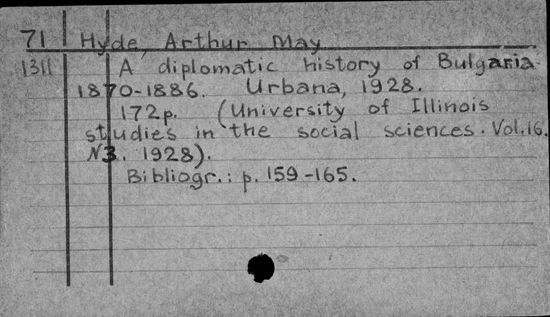 71 Hyde, Arthur May
1311 A diplomatic history of Bulgaria
1870-1886. Urbana, 1928.
172p. (University of Illinois
studies in the social sciences. Vol.16.
N3. 1928).
Bibliogr.: p. 159-165.